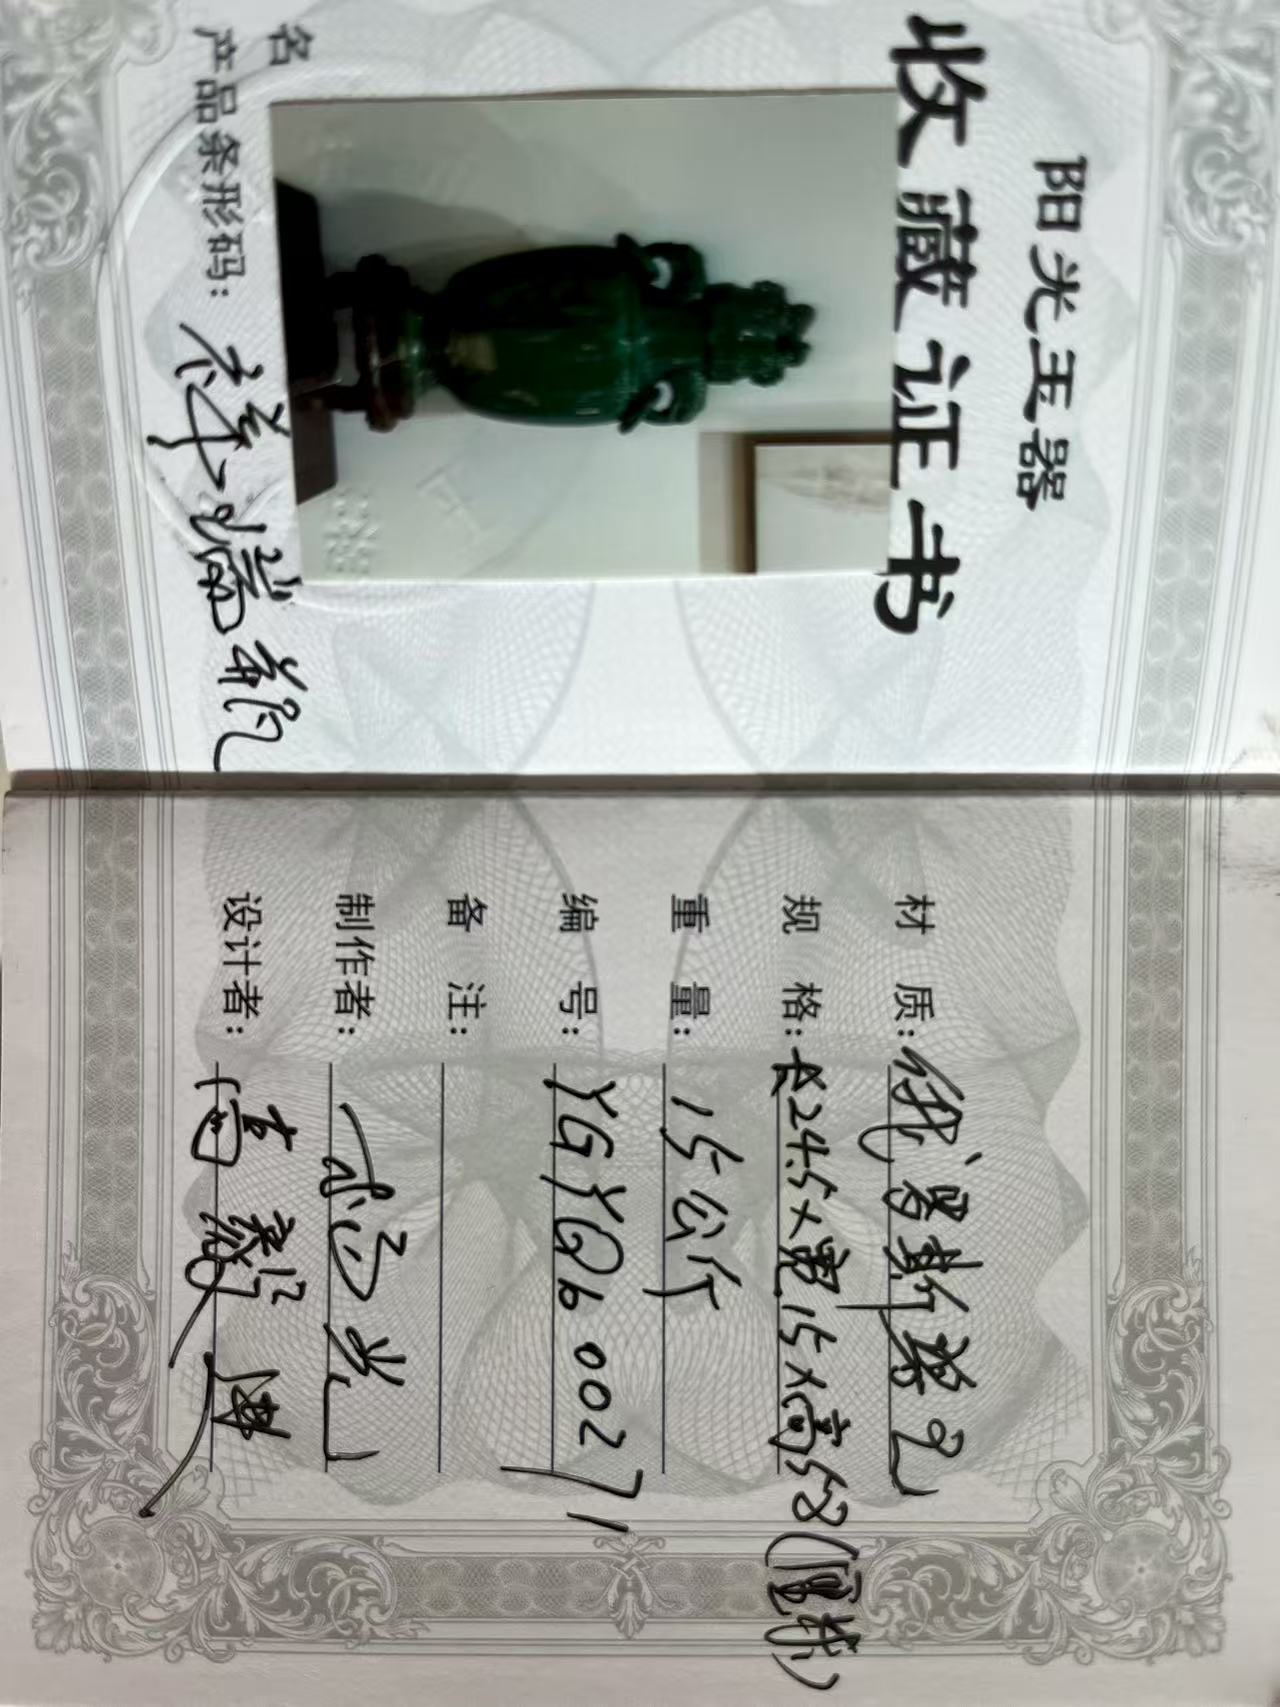 阳光玉器
收藏证书
名
产品条形码:
材质: 俄罗斯碧玉
规格: 长24.5×宽15×高58(厘米)
重量: 15公斤
编号: YGYQb00271
备注:
制作者:
设计者: